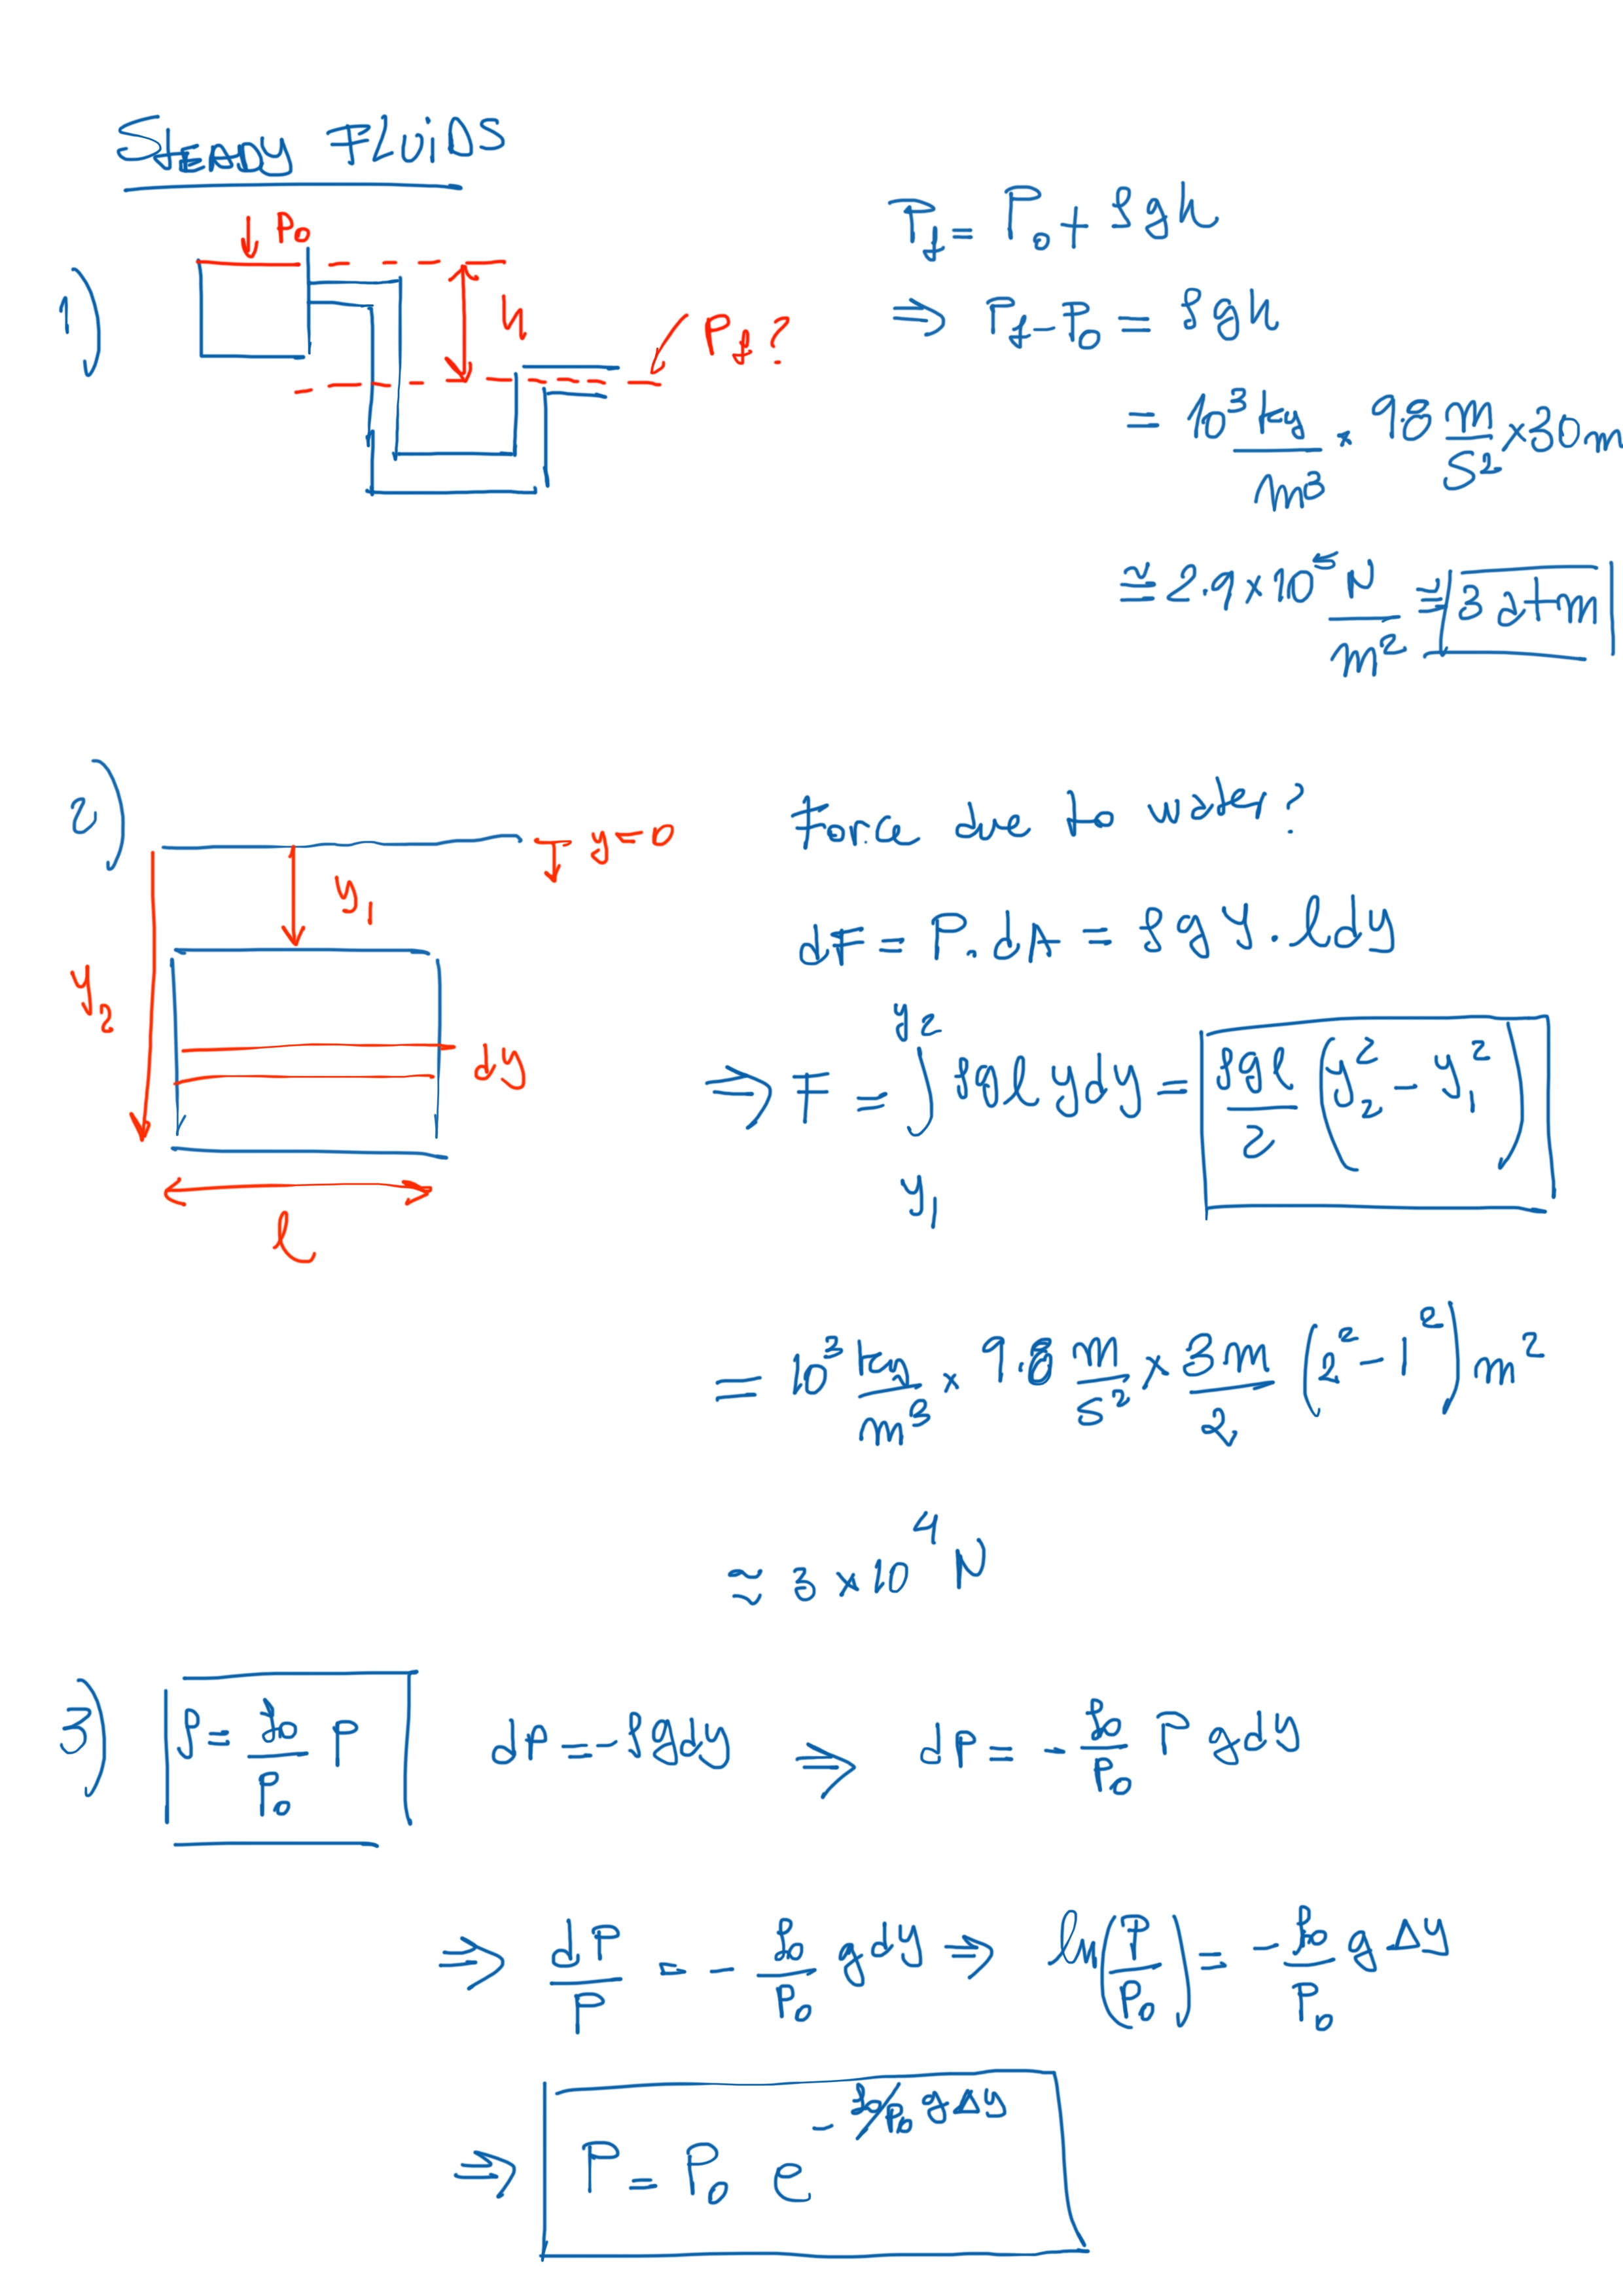 Steady Fluids
1)
↓ P₀
h
P_f ?
P_f = P₀ + ρgh
⇒ P_f - P₀ = ρgh
= 10³ kg/m³ × 9.8 m/s² × 30m
≅ 2.9 × 10⁵ N/m² ≅ 3 atm
2)
y = 0
y₁
y₂
dy
l
Force due to water?
dF = P. dA = ρ g y . l dy
⇒ F = ∫_{y₁}^{y₂} ρ g l y dy = ρgl/2 (y₂² - y₁²)
= 10³ kg/m³ × 9.8 m/s² × 3m/2 (2² - 1²) m²
≈ 3 × 10⁴ N
3)
ρ = ρ₀/P₀ P
dP = - ρgdy ⇒ dP = - ρ₀/P₀ P gdy
⇒ dP/P = - ρ₀/P₀ gdy ⇒ ln(P/P₀) = - ρ₀/P₀ g Δy
⇒ P = P₀ e^{- ρ₀/P₀ gΔy}